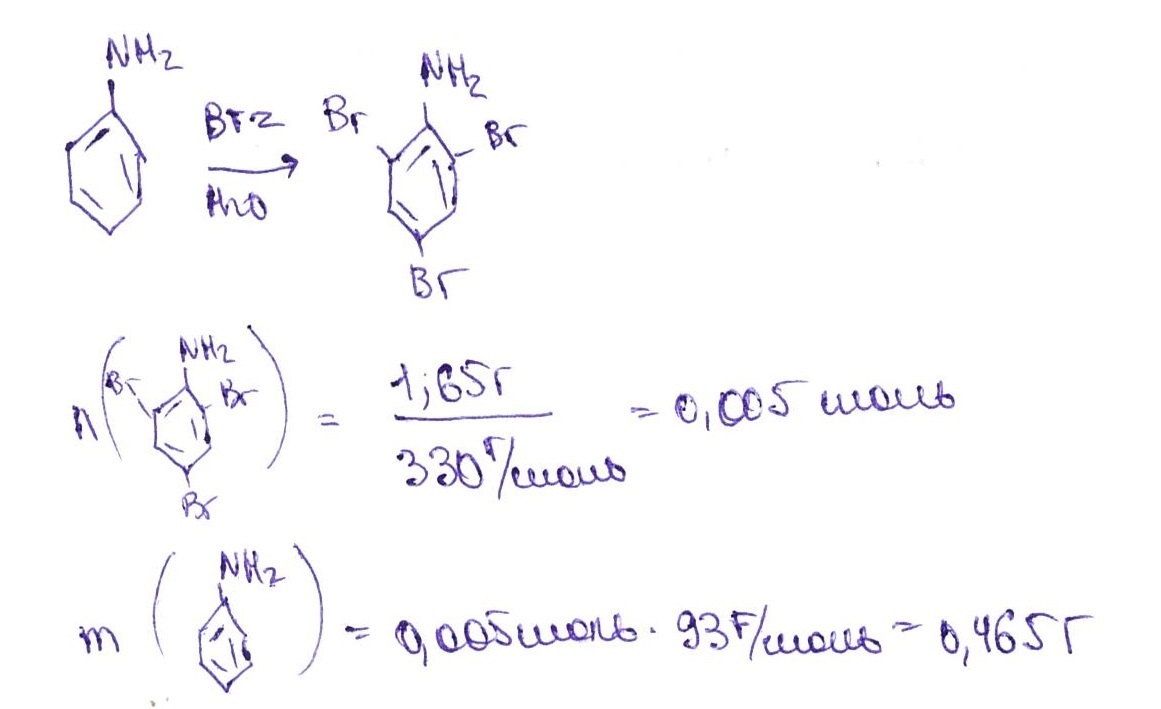 NH2
Br2
H2O
NH2
Br
Br
Br
n( NH2 Br Br Br ) = 1,65г / 330 г/моль = 0,005 моль
m ( NH2 ) = 0,005моль · 93 г/моль = 0,465г